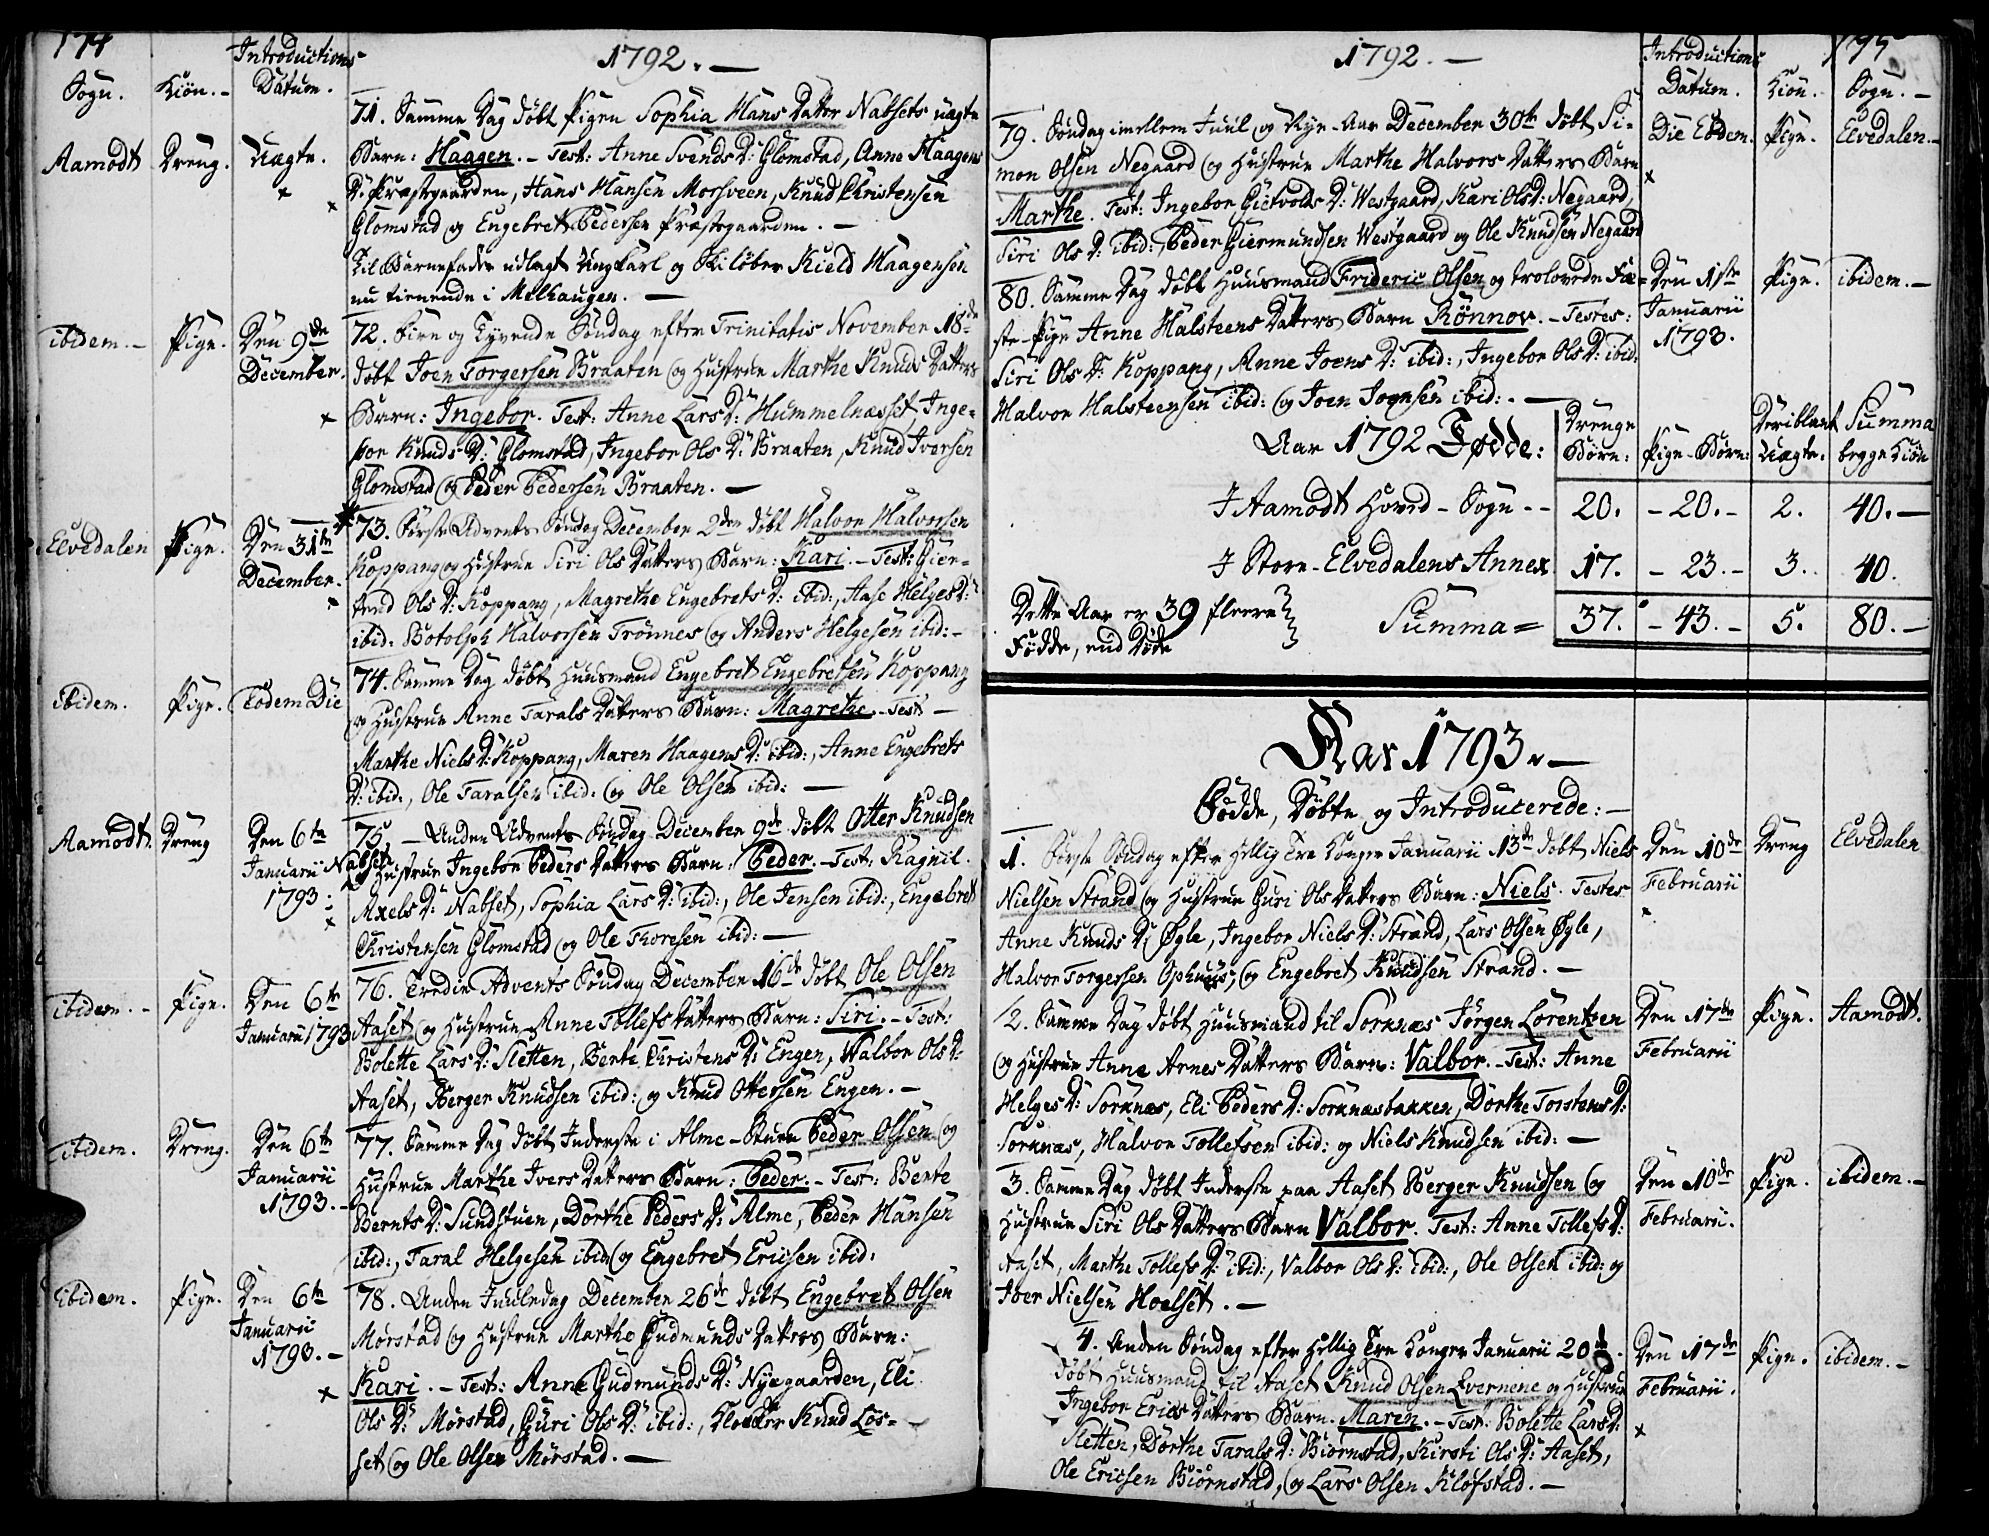 174
Sogn. Kiön. Introductions Datum.
1792.
Aamodt Dreng. Uægte.
71. Samme Dag døbt Pigen Sophia Hans Datter Nabsets uægte
Barn: Haagen. - Test: Anne Svends D: Glomstad, Anne Haagens
D: Præstgaarden, Hans Hansen Morsveen, Knud Christensen
Glomstad og Engebret Pedersen Præstegaarden. -
Til Barnefader udlagt Ungkarl og Skiløber Kield Haagensen
nu tienende i Melhaugen. -
ibidem. - Pige. Den 9de December.
72. Fire og Tyvende Søndag efter Trinitatis November 18de
døbt Joen Torgersen Braaten og Hustrue Marthe Knuds Datters
Barn: Ingebor. Test: Anne Lars D: Hummelnæsset, Inge=
bor Knuds D: Glomstad, Ingebor Ols D: Braaten, Knud Iversen
Glomstad og Peder Pedersen Braaten. -
Elvedalen Pige. Den 31te December.
73. Første Advents Søndag December 2den døbt Halvor Halvorsen
Koppang og Hustrue Siri Ols Datters Barn: Kari. - Test: Gier=
trud Ols D: Koppang, Magrethe Engebrets D: ibid:, Aase Helges D:
ibid: Botolph Halvorsen Trönnes og Anders Helgesen ibid: -
ibidem. Pige. Eodem Die
74. Samme Dag døbt Huusmand Engebret Engebretsen Koppang
og Hustrue Anne Tarals Datters Barn: Magrethe. - Test -
Marthe Niels D: Koppang, Maren Haagens D: ibid:, Anne Engebrets
D: ibid:, Ole Taralsen ibid: og Ole Olsen ibid: -
Aamodt. Dreng Den 6te Januarii 1793.
75. - Anden Advents Søndag December 9de døbt Otter Knudsen
Nabset og Hustrue Ingebor Peders Datters Barn: Peder. - Test: Ragnil
Axels D: Nabset, Sophia Lars D: ibid:, Ole Jensen ibid:, Engebret
Christensen Glomstad og Ole Thoresen ibid: -
ibidem. - Pige. Den 6te Januarii 1793
76. Tredie Advents Søndag December 16de døbt Ole Olsen
Aaset og Hustrue Anne Tollefs Datters Barn: Siri. - Test:
Bolette Lars D: Sletten, Berte Christens D: Engen, Valbor Ols D:
Aaset, Berger Knudsen ibid: og Knud Ottersen Engen. -
ibidem. Dreng. Den 6te Januarii 1793. -
77. Samme Dag døbt Inderste i Alme-Stuen Peder Olsen og
Hustrue Marthe Ivers Datters Barn: Peder. - Test: Bente
Bernts D: Sundstuen, Dorthe Peders D: Alme, Peder Hansen
ibid:, Taral Helgesen ibid: og Engebret Ericsen ibid:
ibidem. Pige. Den 6te Januarii 1793. -
78. Anden Juuledag December 26de døbt Engebret Olsen
Mørstad og Hustrue Marthe Gudmunds Datters Barn:
Kari. - Test: Anne Gudmunds D: Nyegaarden, Eli
Ols D: Mørstad, Guri Ols D: ibid:, Klokker Knud Løs=
set og Ole Olsen Mørstad. -
1792. -
Introductions Datum. Kiön. Sogn. -
175
79. Søndag imellem Juul og Nye-Aar December 30te døbt Si=
mon Olsen Negaard og Hustrue Marthe Halvors Datters Barn
Marthe. Test: Ingebor Gietvolds D: Westgaard, Kari Ols D: Negaard,
Siri Ols D: ibid:, Peder Giermundsen Westgaard og Ole Knudsen Negaard
Die Eodem. Pige. Elvedalen. -
80. Samme Dag døbt Huusmand Frideric Olsen og trolovede Fæ=
ste-Pige Anne Halsteens Datters Barn Rönnov. - Testes:
Siri Ols D: Koppang, Anne Joens D: ibid:, Ingebor Ols D: ibid:
Halvor Halsteensen ibid: og Joen Jognsen ibid: -
Den 1ste Januarii 1793. Pige. ibidem. -
Aar 1792 Fødde: Drenge Børn: Pige-Børn: Deriblant Uægte: Summa begge Kiön
I Aamodt Hoved-Sogn - - 20. - 20. - 2. 40. -
I Store-Elvedalens Annex 17. - 23. - 3. 40.
Summa = 37. - 43. - 5. 80. -
Dette Aar er 39 fleere
Fødde, end Døde
Aar 1793. -
Fødde, Døbte og Introducerede: -
1. Første Søndag efter Hellig Tre Konger Januarii 13de døbt Niels
Nielsen Strand og Hustrue Guri Ols Datters Barn: Niels. Testes
Anne Knuds D: Øgle, Ingebor Niels D: Strand, Lars Olsen Øgle,
Halvor Torgersen Ophuus, og Engebret Knudsen Strand. -
Den 10de Februarii Dreng Elvedalen
2. Samme Dag døbt Huusmand til Sorknæs Jørgen Lorentzen
og Hustrue Anne Arnes Datters Barn: Valbor. - Test: Anne
Helges D: Sorknæs, Eli Peders D: Sorknæsbakken, Dorthe Torstens D:
Sorknæs, Halvor Tollefsen ibid: og Niels Knudsen ibid: -
Den 17de Februarii Pige. Aamodt.
3. Samme Dag døbt Inderste paa Aaset Berger Knudsen og
Hustrue Siri Ols Datters Barn Valbor. Test: Anne Tollefs D:
Aaset, Marthe Tollefs D: ibid:, Valbor Ols D: ibid:, Ole Olsen ibid: og
Joer Nielsen Hoelset. -
Den 10de Februarii. Pige. ibidem. -
4. Anden Søndag efter Hellig Tre Konger Januarii 20de
døbt Huusmand til Aaset Knud Olsen Evernene og Hustrue
Ingebor Erics Datters Barn. Maren. - Test: Bolette Lars D:
Sletten, Dorthe Tarals D: Biörnstad, Kirsti Ols D: Aaset,
Ole Ericsen Biörnstad, og Lars Olsen Kløfstad. -
Den 17de Februarii. Pige. ibidem. -